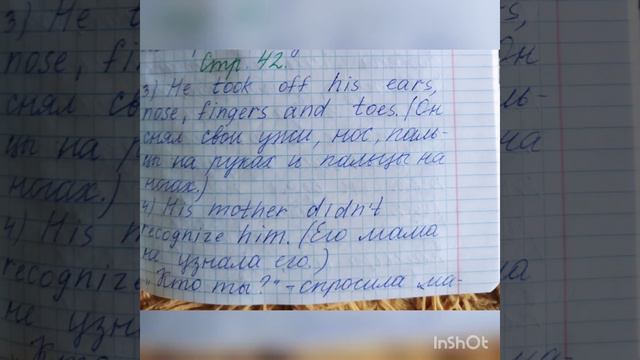 "Стр. 42."
3) He took off his ears,
nose, fingers and toes. (Он
снял свои уши, нос, паль-
цы на руках и пальцы на
ногах.)
4) His mother didn't
recognize him. (Его мама
не узнала его.)
"Кто ты?" - спросила ма-
InShOt